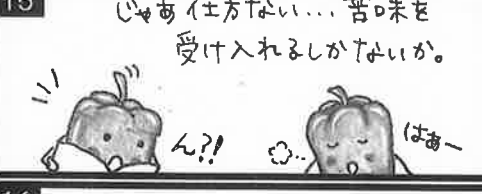 15
じゃあ仕方ない...苦味を
受け入れるしかないか。
ん?!
はあ〜